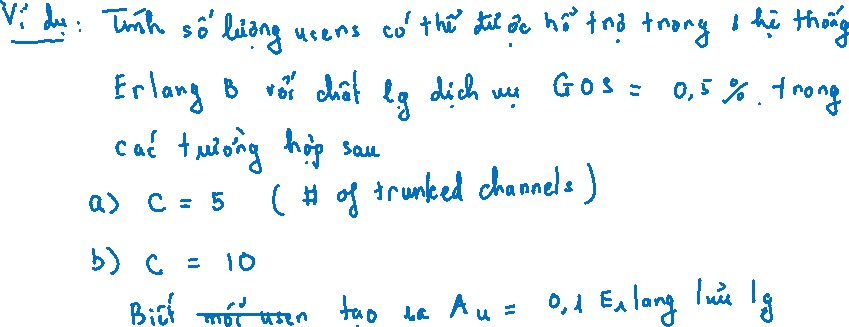 Ví dụ: Tính số lượng users có thể được hỗ trợ trong 1 hệ thống
Erlang B với chất lg dịch vụ GOS = 0,5%. trong
các trường hợp sau
a) C = 5 (# of trunked channels)
b) C = 10
Biết mỗi user tạo ra Au = 0,1 Erlang lưu lg